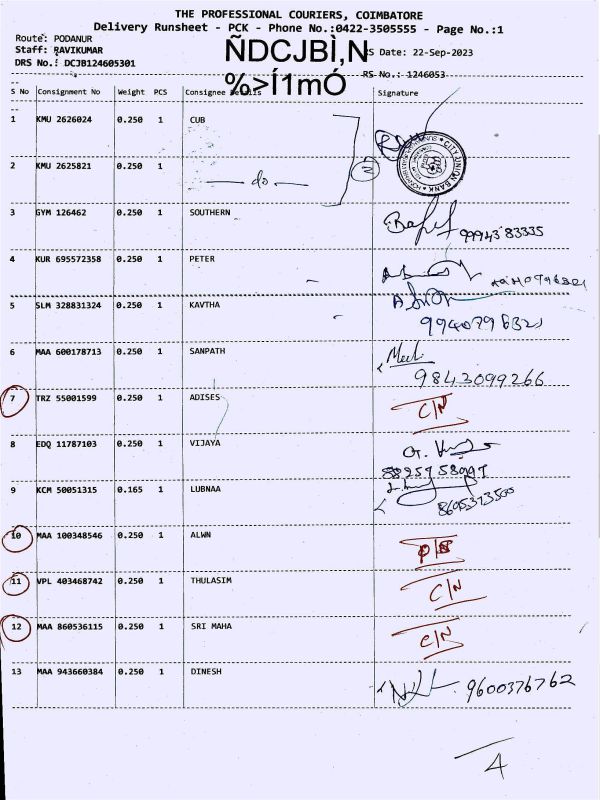 THE PROFESSIONAL COURIERS, COIMBATORE
Delivery Runsheet - PCK - Phone No.:0422-3505555 - Page No.:1
Route: PODANUR
Staff: RAVIKUMAR
DRS No.: DCJB124605301
ÑDCJBÌ,N
%>Í1mÓ
RS Date: 22-Sep-2023
RS No.: 1246053
S No Consignment No Weight PCS Consignee Details Signature
1 KMU 2626024 0.250 1 CUB
CITY UNION BANK
2 KMU 2625821 0.250 1 — do —
3 GYM 126462 0.250 1 SOUTHERN 9994383335
4 KUR 695572358 0.250 1 PETER
5 SLM 328831324 0.250 1 KAVTHA
6 MAA 600178713 0.250 1 SANPATH
9843099266
7 TRZ 55001599 0.250 1 ADISES C/N
8 EDQ 11787103 0.250 1 VIJAYA
9 KCM 50051315 0.165 1 LUBNAA
10 MAA 100348546 0.250 1 ALWN
11 VPL 403468742 0.250 1 THULASIM C/N
12 MAA 860536115 0.250 1 SRI MAHA C/N
13 MAA 943660384 0.250 1 DINESH 9600376762
4